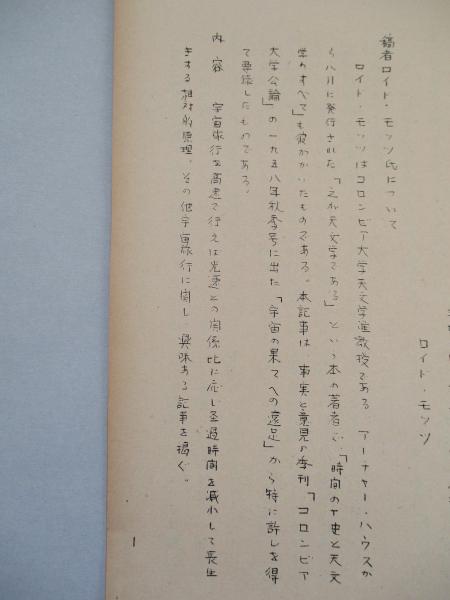 ロイド・モッツ
稿者ロイド・モッツ氏について
ロイド・モッツはコロンビア大学天文学准教授である アーチャー・ハウスか
ら八月に発行された「之が天文学である」という本の著者で、「時間の歴史と天文
学のすべて」も彼がかいたものである。本記事は、事実と意見の季刊「コロンビア
大学公論」の一九五八年秋季号に出た「宇宙の果てへの遠足」から特に許しを得
て要録したものである。
内容 宇宙旅行を高速で行えば光速との関係比に応じ経過時間を減小して長生
きする相対的原理、その他宇宙旅行に関し興味ある記事を掲ぐ。
1